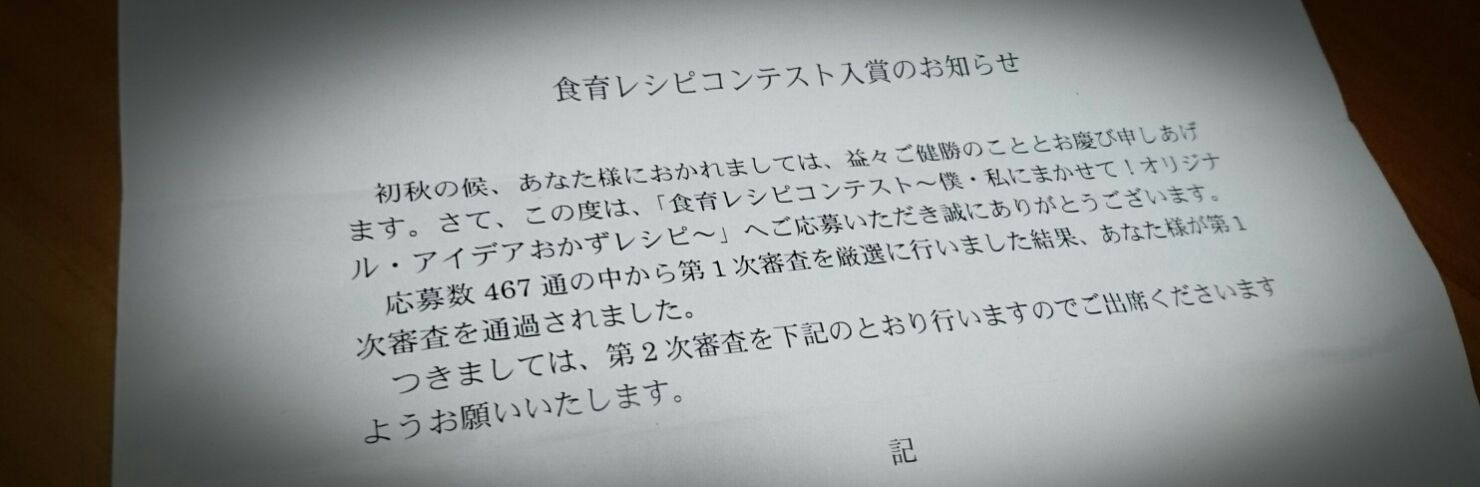 食育レシピコンテスト入賞のお知らせ
初秋の候、あなた様におかれましては、益々ご健勝のこととお慶び申しあげ
ます。さて、この度は、「食育レシピコンテスト～僕・私にまかせて！オリジナ
ル・アイデアおかずレシピ～」へご応募いただき誠にありがとうございます。
応募数 467 通の中から第１次審査を厳選に行いました結果、あなた様が第１
次審査を通過されました。
つきましては、第２次審査を下記のとおり行いますのでご出席くださいます
ようお願いいたします。
記